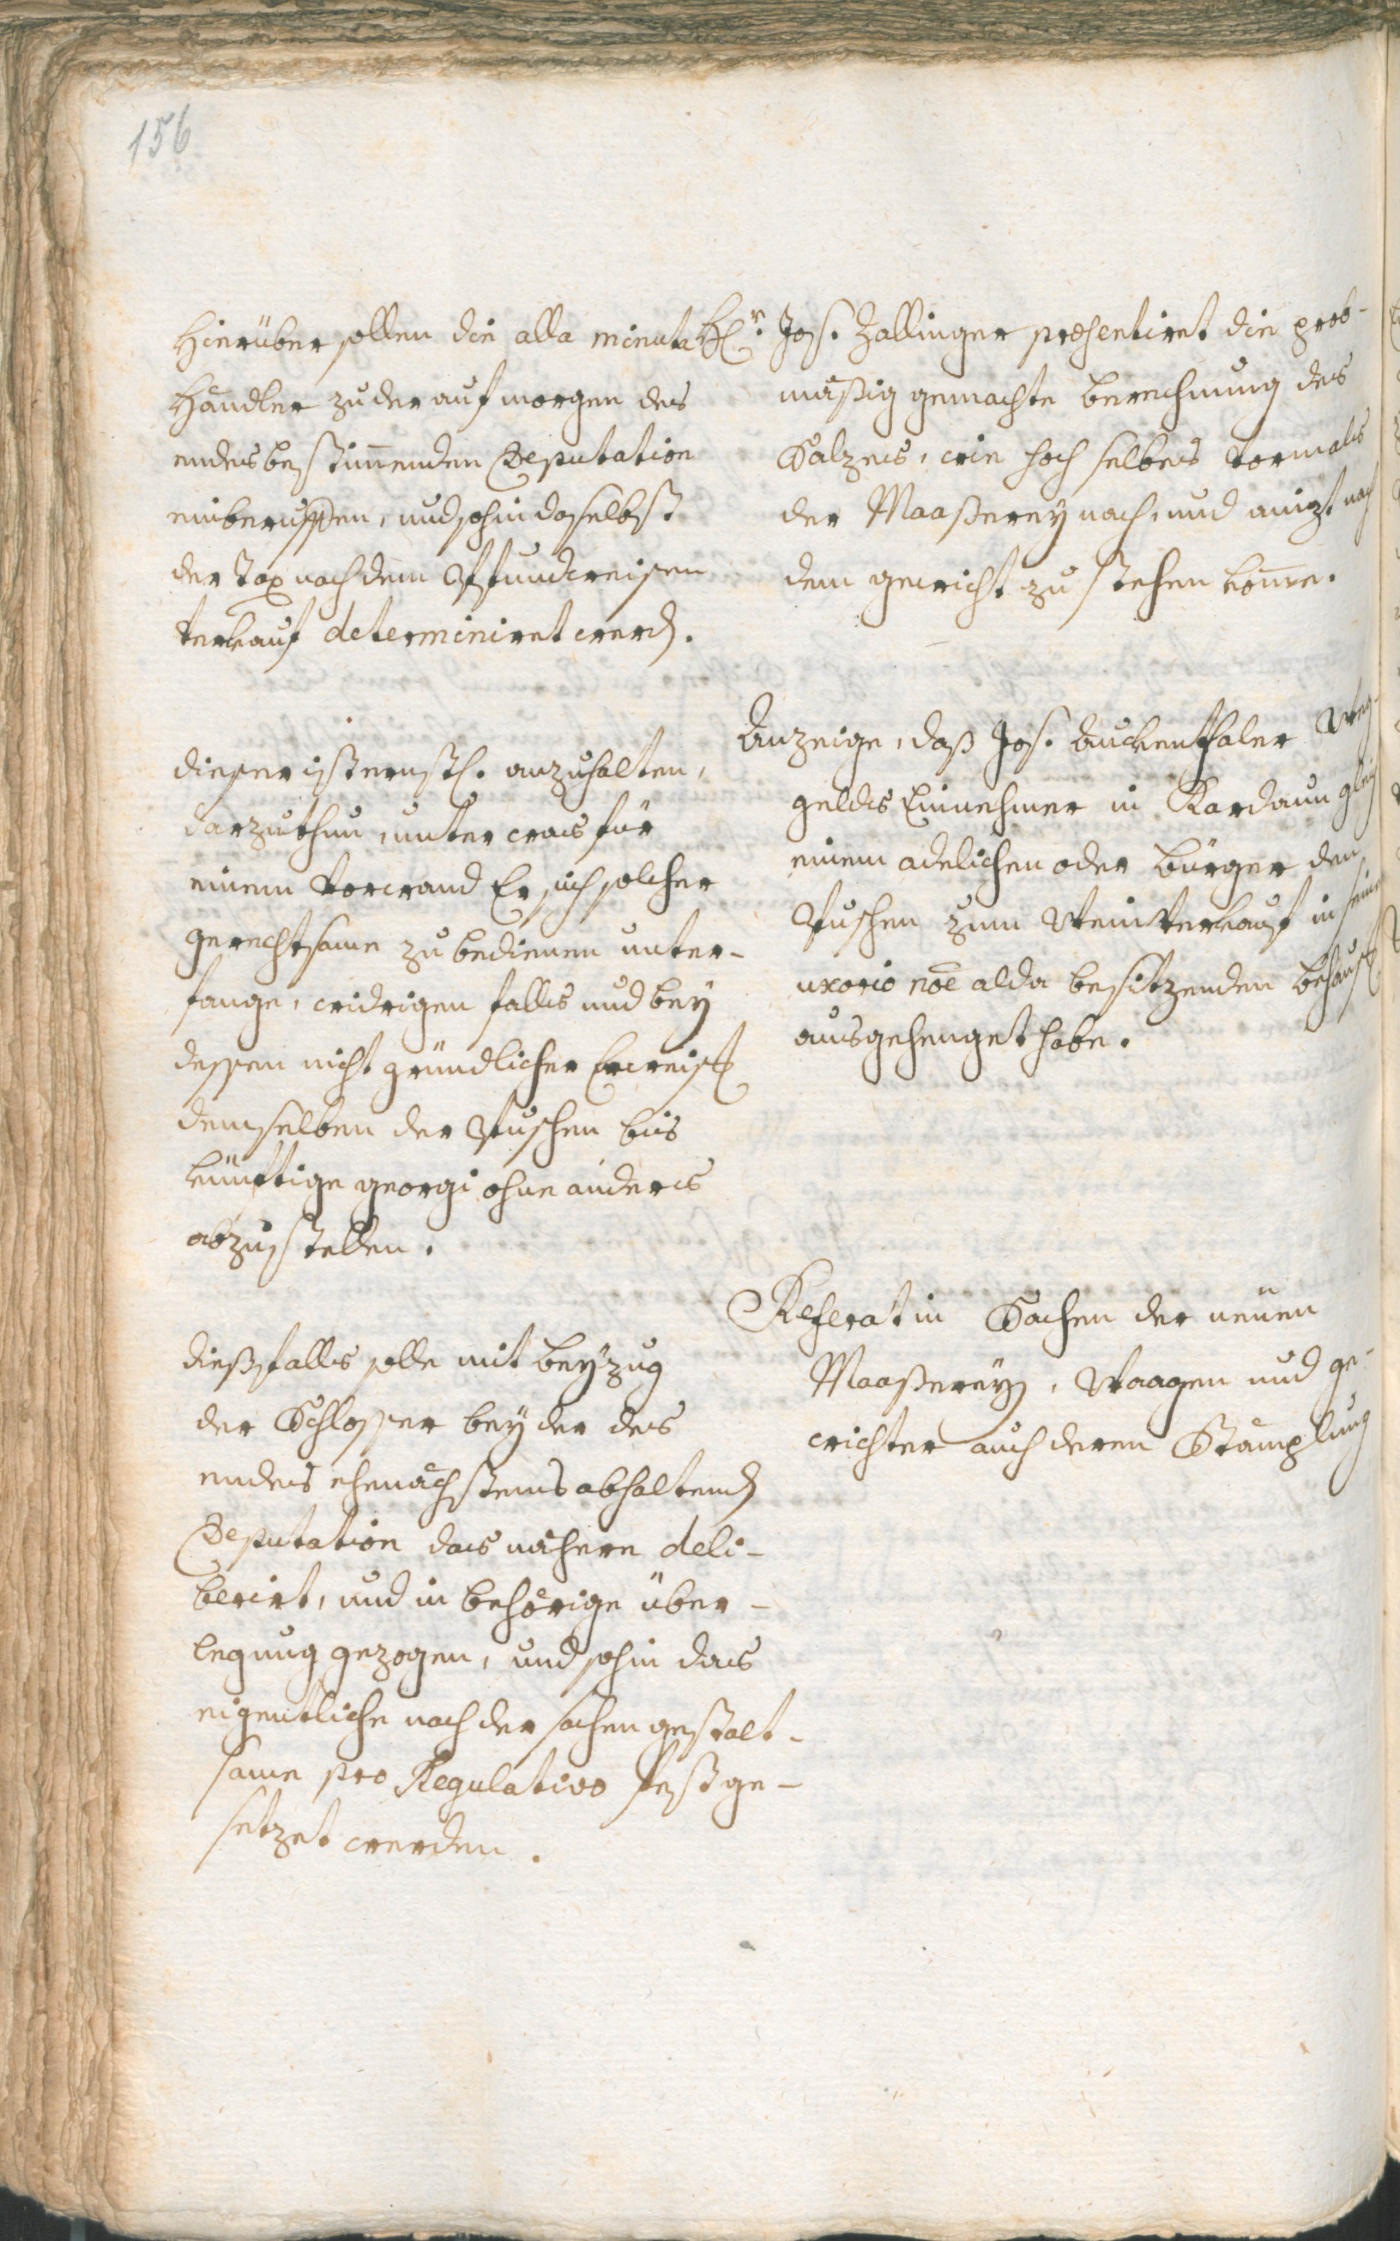 156
Hierüber sollen die alla minuta
Händler zu der auf morgen des
endes bestimmenden Deputation
einberuffen, und sohin daselbst
der Tax nach dem Pfundweisen
Verkauf determiniret werd.
dieser ist ernstl. anzuhalten,
darzuthun, unter was für
einem Vorwand Er sich solcher
gerechtsame zu bedienen unter-
fange, widrigen falls und bey
dessen nicht gründlicher Erweis
demselben der Puschen bis
künftige georgi ohne anders
abzustellen.
dießfalls solle mit beyzug
der Schlosser bey der des
endes ehenächstens abhaltend
Deputation das nähere deli-
berirt, und in behörige über-
legung gezogen, und sohin das
eigentliche nach der sachen gestalt-
same pro Regulativo festge-
setzet werden.
Hr. Jos. Zallinger præsentiret die prob-
mäßig gemachte berechnung des
Salzes, wie hoch selbes vormals
der Maaßerey nach, und anizt nach
dem gewicht zu stehen kom̄e.
Anzeige, daß Jos. Auckenthaler Weg-
gelds Einnehmer in Kardaun gleich
einem adelichen oder bürger den
Puschen zum Weinverkauf in seiner
uxorio noē alda besitzenden behaus
ausgehenget habe.
Referat in Sachen der neuen
Maaßerey, Waagen und ge-
wichter auch deren Stämplung